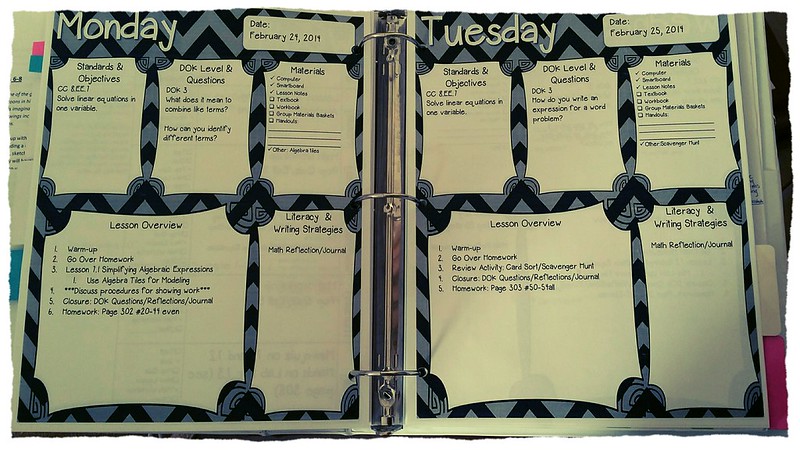 Monday
Date:
February 24, 2014
Standards &
Objectives
CC 8.EE.7
Solve linear equations in
one variable.
DOK Level &
Questions
DOK 3
What does it mean to
combine like terms?
How can you identify
different terms?
Materials
✓ Computer
✓ Smartboard
✓ Lesson Notes
❑ Textbook
❑ Workbook
❑ Group Materials Baskets
❑ Handouts:
✓Other: Algebra tiles
Lesson Overview
1. Warm-up
2. Go Over Homework
3. Lesson 7.1 Simplifying Algebraic Expressions
1. Use Algebra Tiles for Modeling
4. ***Discuss procedures for showing work***
5. Closure: DOK Questions/Reflections/Journal
6. Homework: Page 302 #20-44 even
Literacy &
Writing Strategies
Math Reflection/Journal
Tuesday
Date:
February 25, 2014
Standards &
Objectives
CC 8.EE.7
Solve linear equations in
one variable.
DOK Level &
Questions
DOK 3
How do you write an
expression for a word
problem?
Materials
✓ Computer
✓ Smartboard
✓ Lesson Notes
❑ Textbook
❑ Workbook
❑ Group Materials Baskets
❑ Handouts:
✓Other:Scavenger Hunt
Lesson Overview
1. Warm-up
2. Go Over Homework
3. Review Activity: Card Sort/Scavenger Hunt
4. Closure: DOK Questions/Reflections/Journal
5. Homework: Page 303 #50-54all
Literacy &
Writing Strategies
Math Reflection/Journal